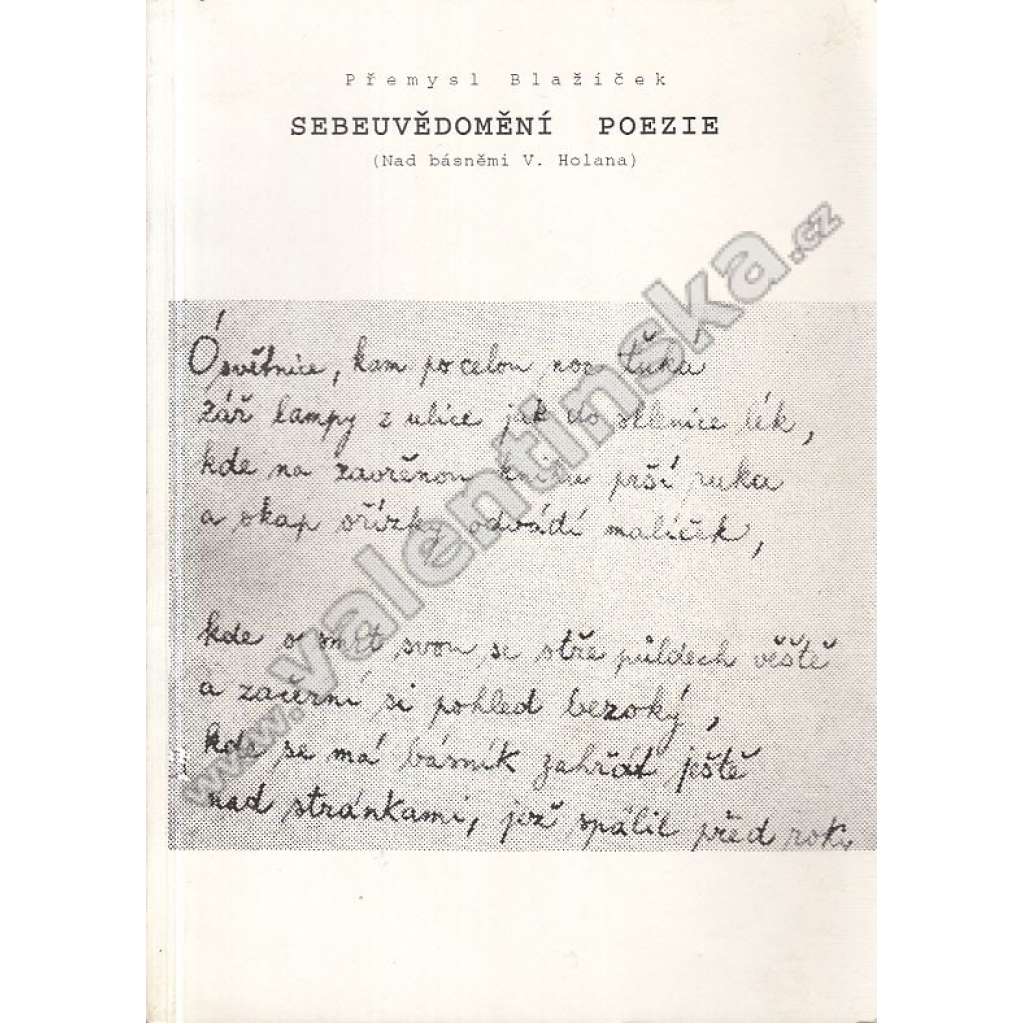 Přemysl Blažíček
SEBEUVĚDOMĚNÍ POEZIE
(Nad básněmi V. Holana)
Ó světnice, kam po celou noc ťuká
zář lampy z ulice jak do sklenice lék,
kde na zavřenou knihu prší ruka
a okap odvádí malíček,
kde o smrt svou se otře půldech věště
a začerní si pohled bezoký,
kde se má básník zahřát ještě
nad stránkami, jež spálil před roky
www.valentinska.cz